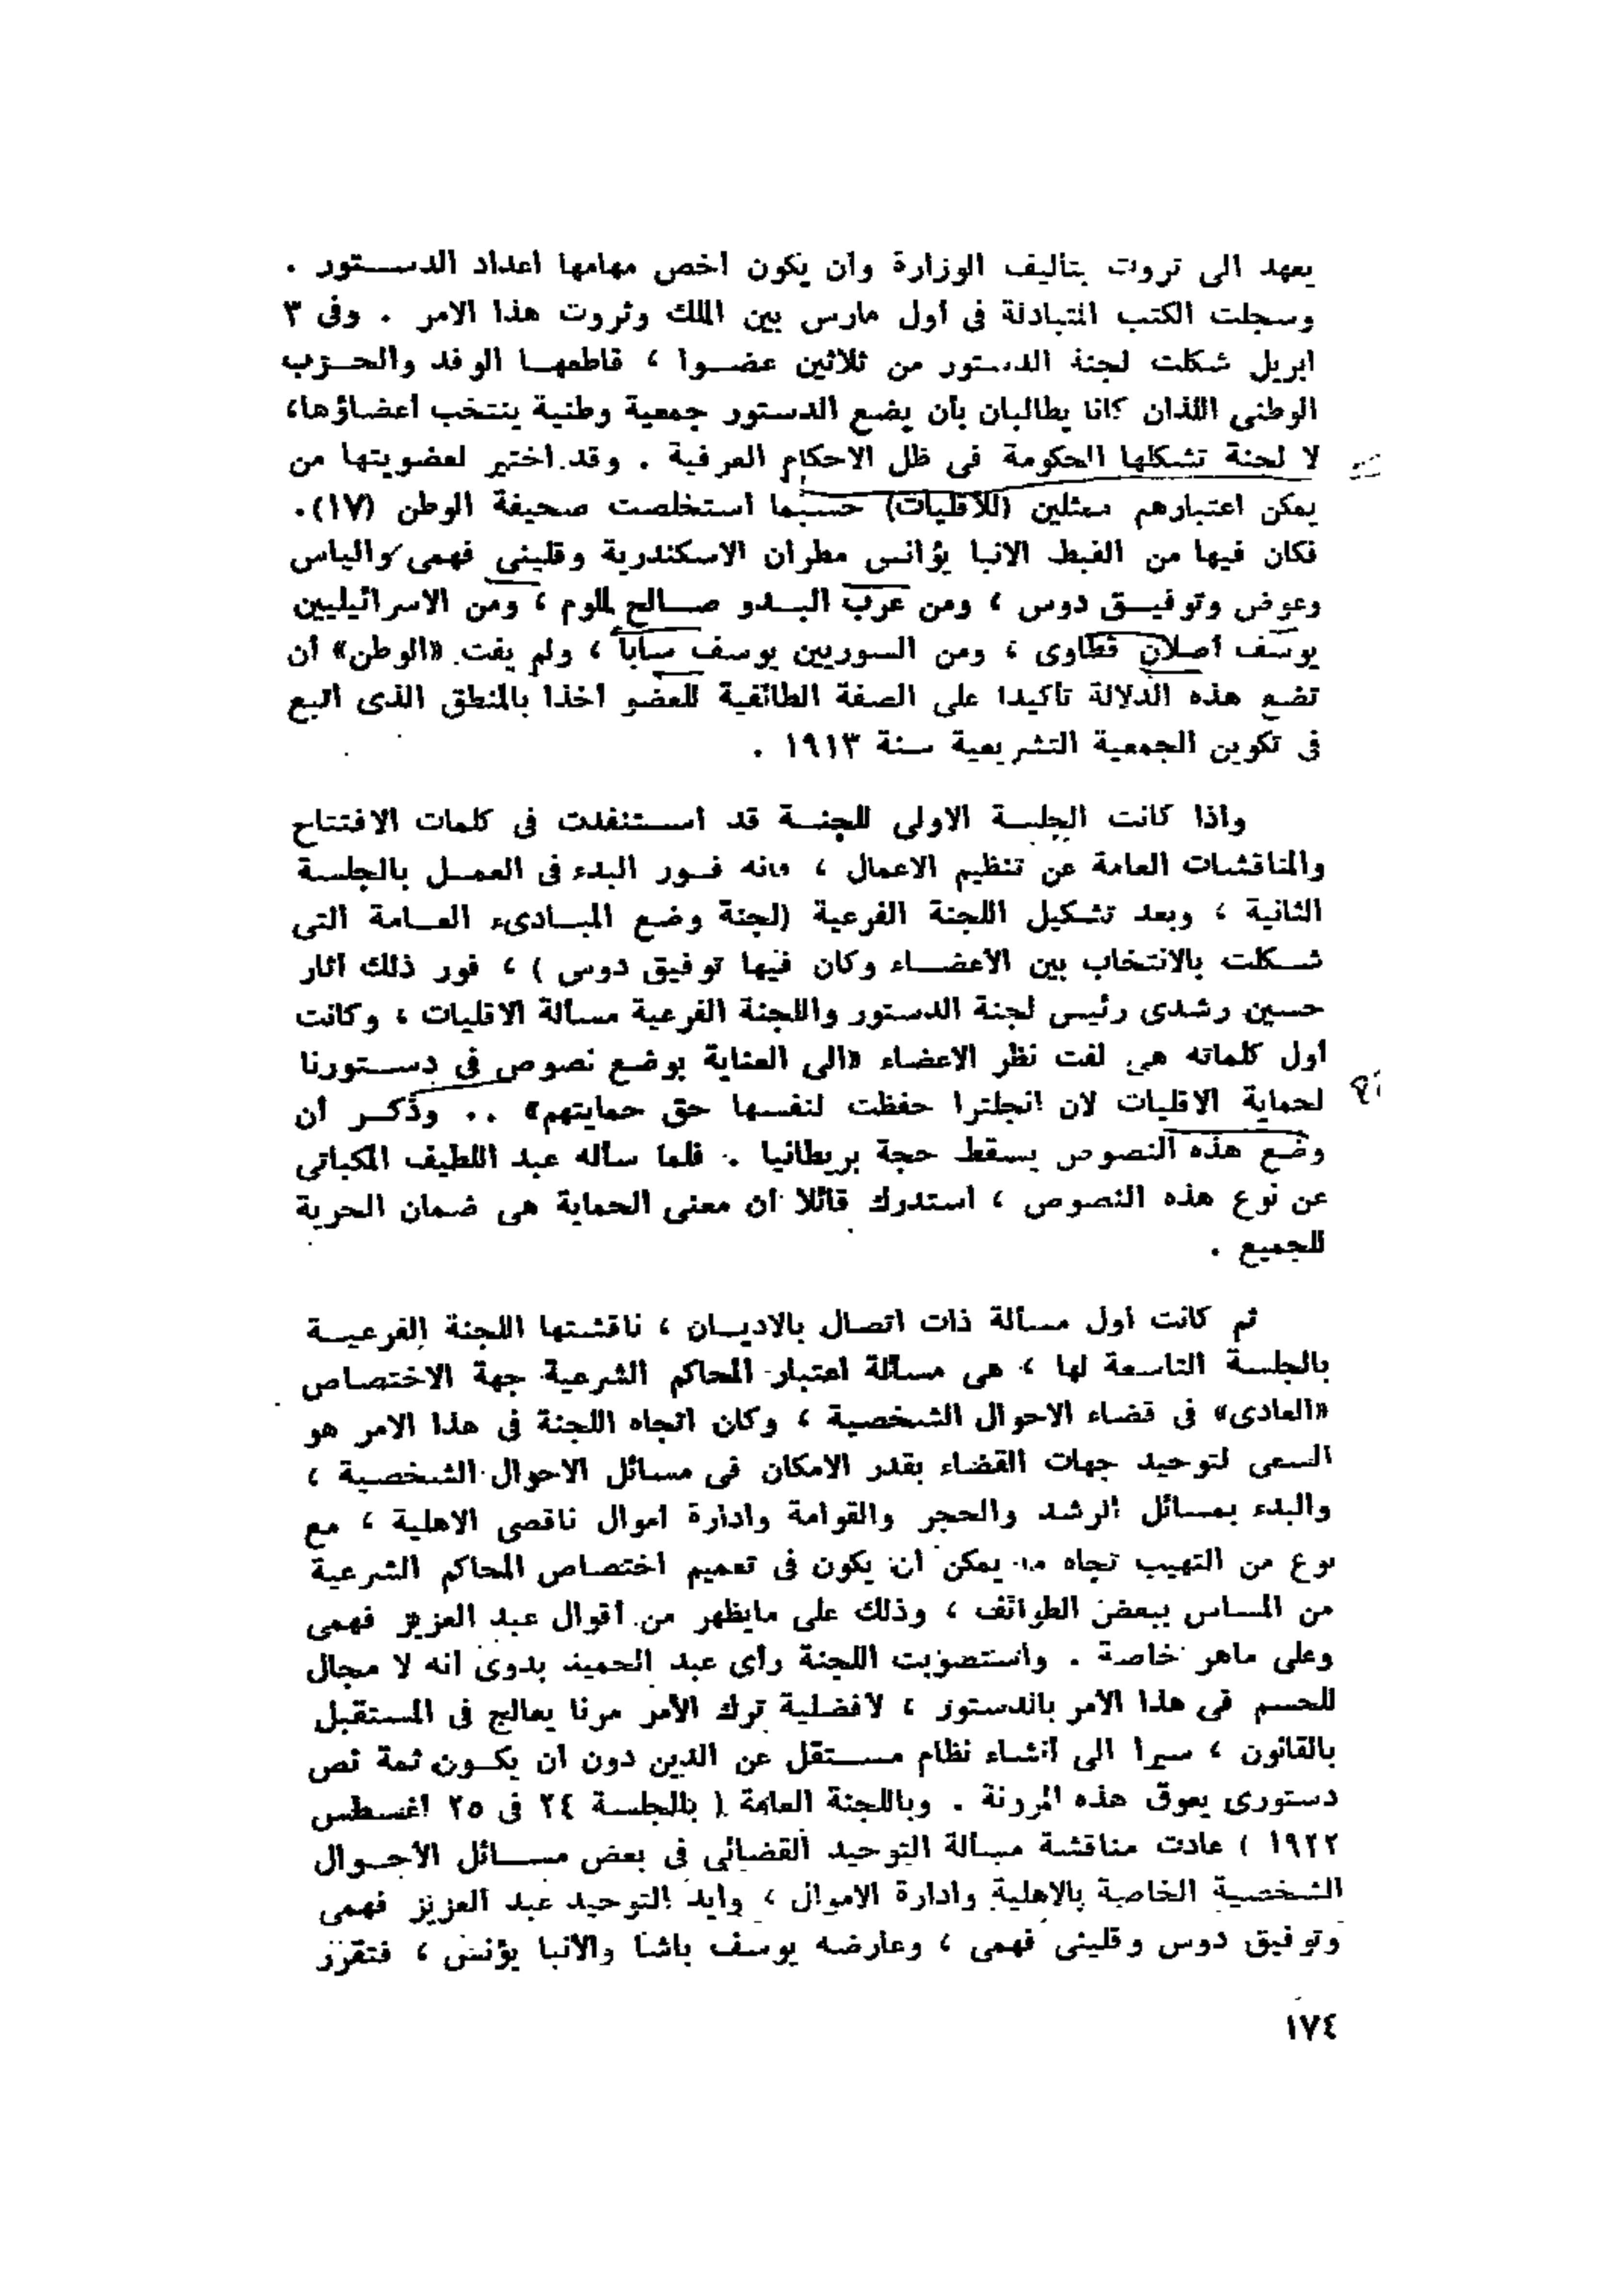 يعهد الى ثروت بتأليف الوزارة وأن يكون أخص مهامها اعداد الدستور .
وسجلت الكتب المتبادلة فى أول مارس بين الملك وثروت هذا الامر . وفى ٣
ابريل شكلت لجنة الدستور من ثلاثين عضوا ، قاطعها الوفد والحزب
الوطنى اللذان كانا يطالبان بأن يضع الدستور جمعية وطنية ينتخب أعضاؤها،
لا لجنة تشكلها الحكومة فى ظل الاحكام العرفية . وقد اختير لعضويتها من
يمكن اعتبارهم ممثلين (للأقليات) حسبما استخلصت صحيفة الوطن (١٧).
فكان فيها من القبط الانبا يؤانس مطران الاسكندرية وقلينى فهمى والياس
وعوض وتوفيق دوس ، ومن عرب البدو صالح لملوم ، ومن الاسرائيليين
يوسف أصلان قطاوى ، ومن السوريين يوسف سابا ، ولم يفت «الوطن» أن
تضع هذه الدلالة تأكيدا على الصفة الطائفية للعضو أخذا بالمنطق الذى اتبع
فى تكوين الجمعية التشريعية سنة ١٩١٣ .
واذا كانت الجلسة الاولى للجنة قد استنفدت فى كلمات الافتتاح
والمناقشات العامة عن تنظيم الاعمال ، فانه فور البدء فى العمل بالجلسة
الثانية ، وبعد تشكيل اللجنة الفرعية (لجنة وضع المبادىء العامة التى
شكلت بالانتخاب بين الأعضاء وكان فيها توفيق دوس ) ، فور ذلك أثار
حسين رشدى رئيس لجنة الدستور واللجنة الفرعية مسألة الاقليات ، وكانت
أول كلماته هى لفت نظر الاعضاء «الى العناية بوضع نصوص فى دستورنا
لحماية الاقليات لان انجلترا حفظت لنفسها حق حمايتهم» .. وذكر أن
وضع هذه النصوص يسقط حجة بريطانيا . فلما سأله عبد اللطيف المكباتى
عن نوع هذه النصوص ، استدرك قائلا أن معنى الحماية هى ضمان الحرية
للجميع .
ثم كانت أول مسألة ذات اتصال بالاديان ، ناقشتها اللجنة الفرعية
بالجلسة التاسعة لها ، هى مسألة اعتبار المحاكم الشرعية جهة الاختصاص
«العادى» فى قضاء الاحوال الشخصية ، وكان اتجاه اللجنة فى هذا الامر هو
السعى لتوحيد جهات القضاء بقدر الامكان فى مسائل الاحوال الشخصية ،
والبدء بمسائل الرشد والحجر والقوامة وادارة أموال ناقصى الاهلية ، مع
نوع من التهيب تجاه ما يمكن أن يكون فى تعميم اختصاص المحاكم الشرعية
من المساس ببعض الطوائف ، وذلك على مايظهر من أقوال عبد العزيز فهمى
وعلى ماهر خاصة . واستصوبت اللجنة رأى عبد الحميد بدوى انه لا مجال
للحسم فى هذا الأمر بالدستور ، لافضلية ترك الأمر مرنا يعالج فى المستقبل
بالقانون ، سيرا الى انشاء نظام مستقل عن الدين دون أن يكون ثمة نص
دستورى يعوق هذه المرونة . وباللجنة العامة ( بالجلسة ٢٤ فى ٢٥ أغسطس
١٩٢٢ ) عادت مناقشة مسألة التوحيد القضائى فى بعض مسائل الأحوال
الشخصية الخاصة بالاهلية وادارة الاموال ، وايد التوحيد عبد العزيز فهمى
وتوفيق دوس وقلينى فهمى ، وعارضه يوسف باشا والانبا يؤنس ، فتقرر
١٧٤